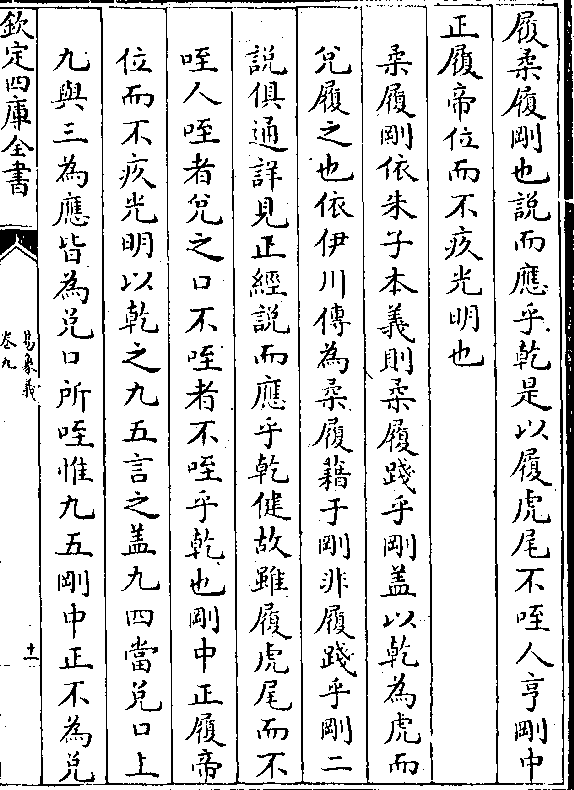 履柔履剛也說而應乎乾是以履虎尾不咥人亨剛中
正履帝位而不疚光明也
柔履剛依朱子本義則柔履踐乎剛盖以乾為虎而
兌履之也依伊川傳為柔履藉于剛非履踐乎剛二
說俱通詳見正經說而應乎乾健故雖履虎尾而不
咥人咥者兌之口不咥者不咥乎乾也剛中正履帝
位而不疚光明以乾之九五言之盖九四當兌口上
九與三為應皆為兌口所咥惟九五剛中正不為兌
欽定四庫全書
易象義
卷九
十一